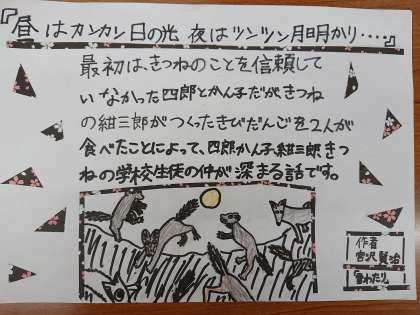 『昼はカンカン日の光 夜はツンツン月明かり‥‥』
最初は、きつねのことを信頼して
いなかった四郎とかん子だが、きつね
の紺三郎がつくったきびだんごを2人が
食べたことによって、四郎かん子紺三郎きつ
ねの学校生徒の仲が深まる話です。
作者
宮沢賢治
雪わたり